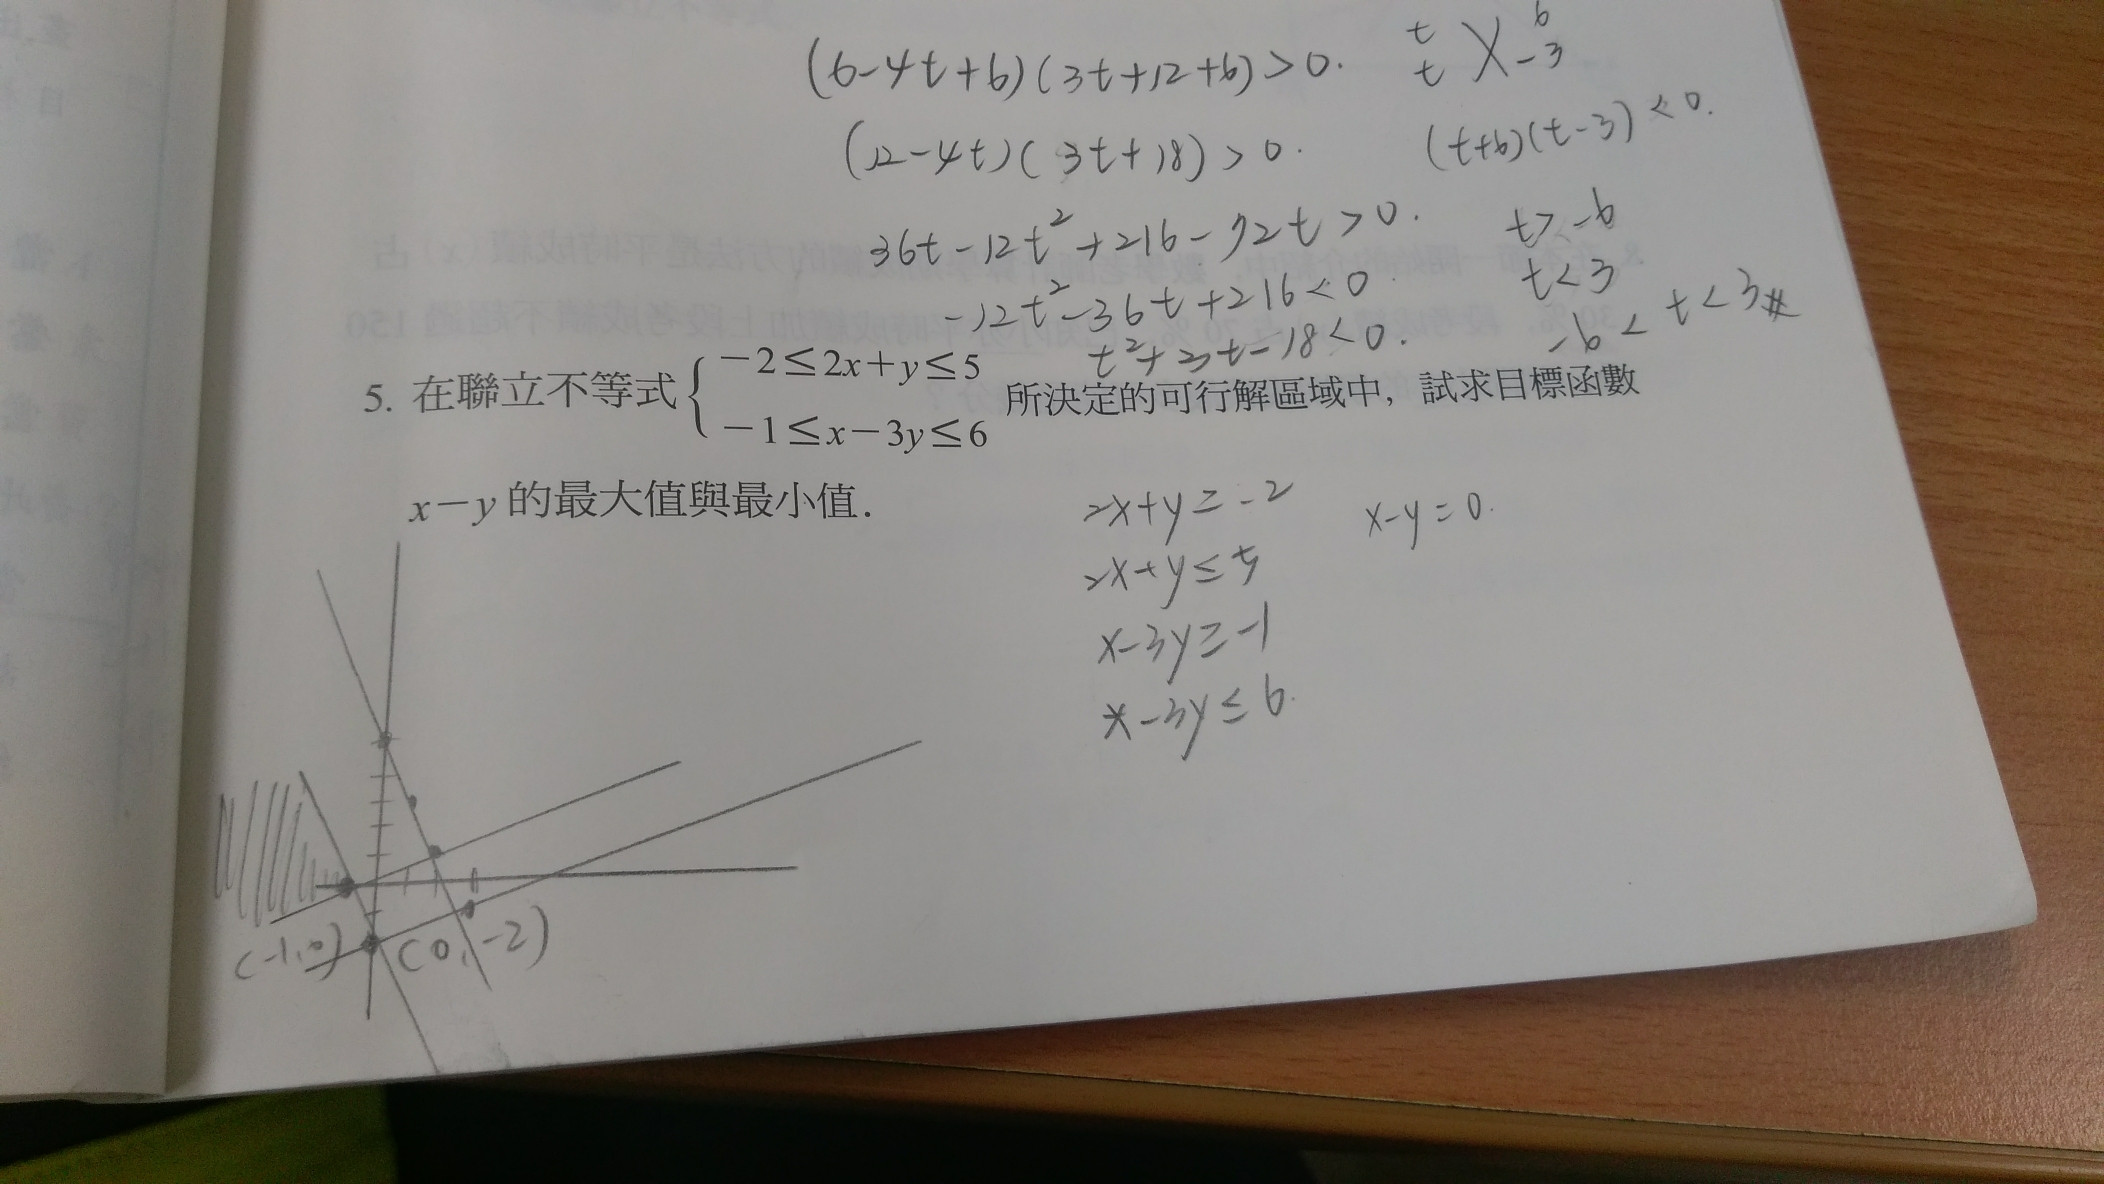 (6-4t+6)(3t+12+6)>0.
t 6
t -3
(12-4t)(3t+18)>0.
(t+6)(t-3)<0.
36t-12t²+216-72t>0.
t>-6
-12t²-36t+216<0
t<3
t²+3t-18<0.
-6<t<3#
5. 在聯立不等式{-2≤2x+y≤5
-1≤x-3y≤6 所決定的可行解區域中，試求目標函數
x-y 的最大值與最小值.
2x+y≥-2 x-y=0.
2x+y≤5
x-3y≥-1
x-3y≤6.
(-1,0) (0,-2)